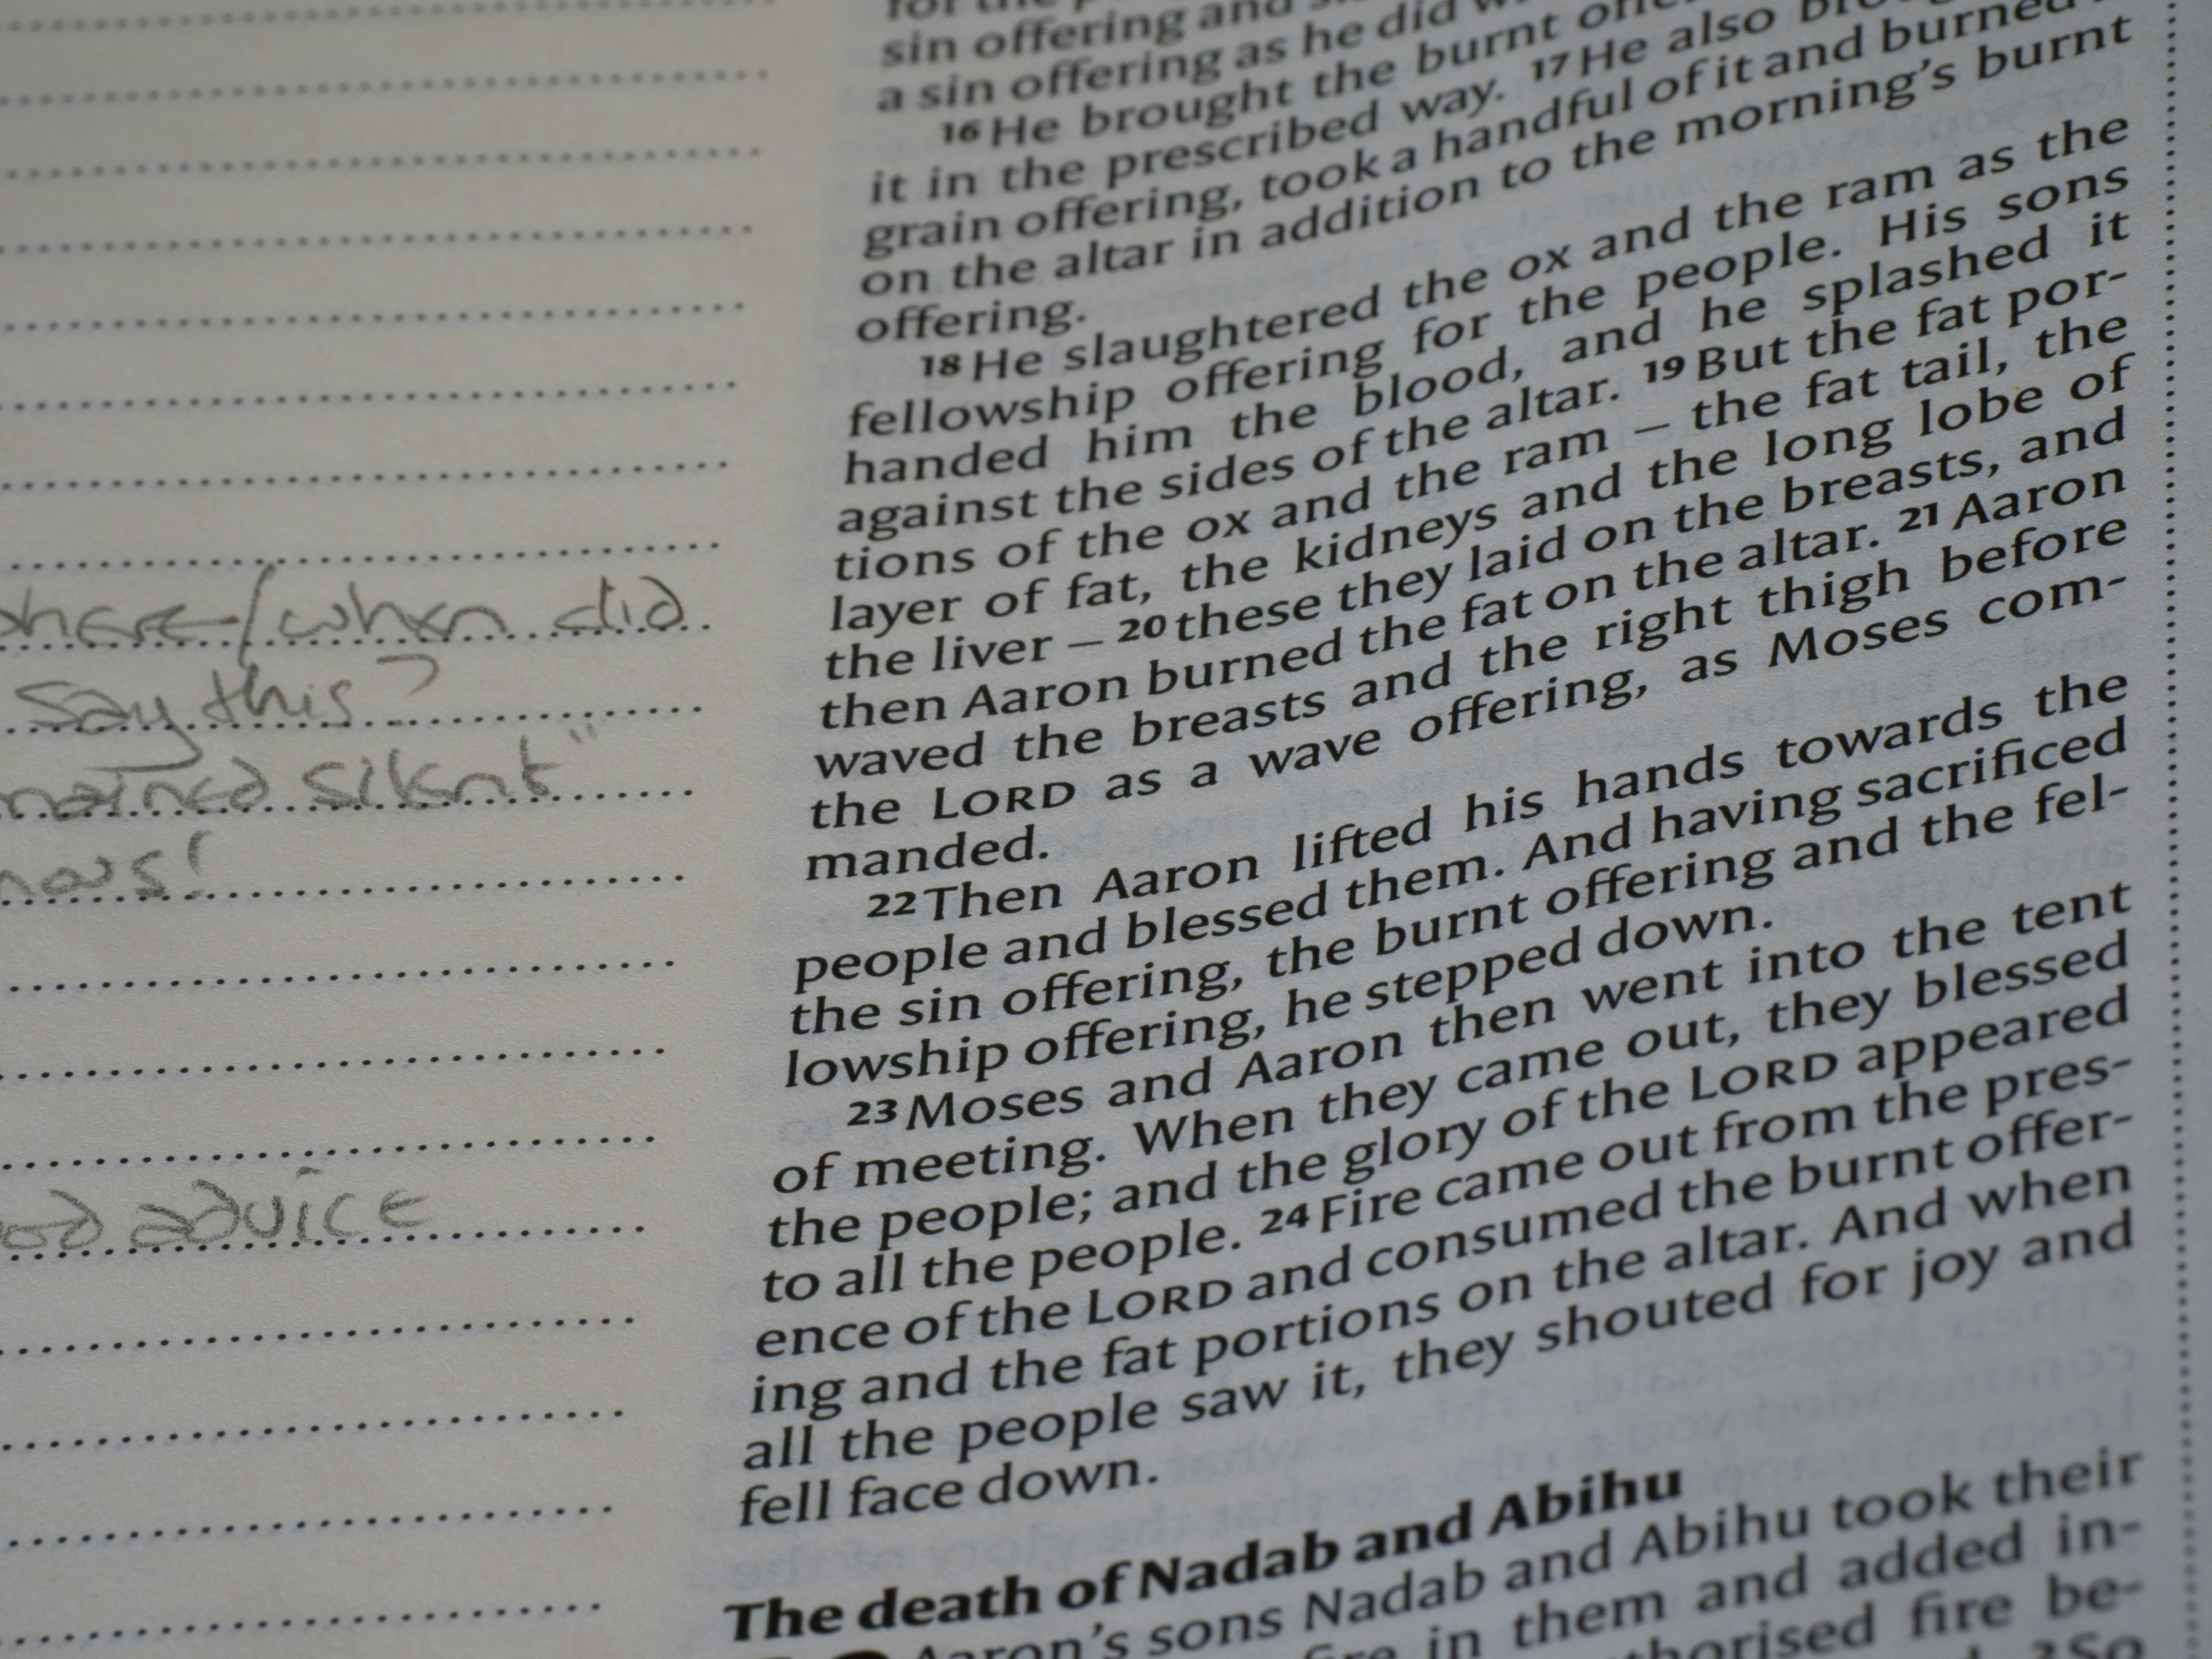 here/when did
say this?
mained silent"
ood advice
sin offering and
a sin offering as he did
16 He brought the burnt
it in the prescribed way. 17 He also
grain offering, took a handful of it and burned
on the altar in addition to the morning's burnt
offering.
18 He slaughtered the ox and the ram as the
fellowship offering for the people. His sons
handed him the blood, and he splashed it
against the sides of the altar. 19 But the fat por-
tions of the ox and the ram – the fat tail, the
layer of fat, the kidneys and the long lobe of
the liver – 20 these they laid on the breasts, and
then Aaron burned the fat on the altar. 21 Aaron
waved the breasts and the right thigh before
the LORD as a wave offering, as Moses com-
manded.
22 Then Aaron lifted his hands towards the
people and blessed them. And having sacrificed
the sin offering, the burnt offering and the fel-
lowship offering, he stepped down.
23 Moses and Aaron then went into the tent
of meeting. When they came out, they blessed
the people; and the glory of the LORD appeared
to all the people. 24 Fire came out from the pres-
ence of the LORD and consumed the burnt offer-
ing and the fat portions on the altar. And when
all the people saw it, they shouted for joy and
fell face down.
The death of Nadab and Abihu
Aaron's sons Nadab and Abihu took their
fire in them and added in-
horised fire be-
2 So